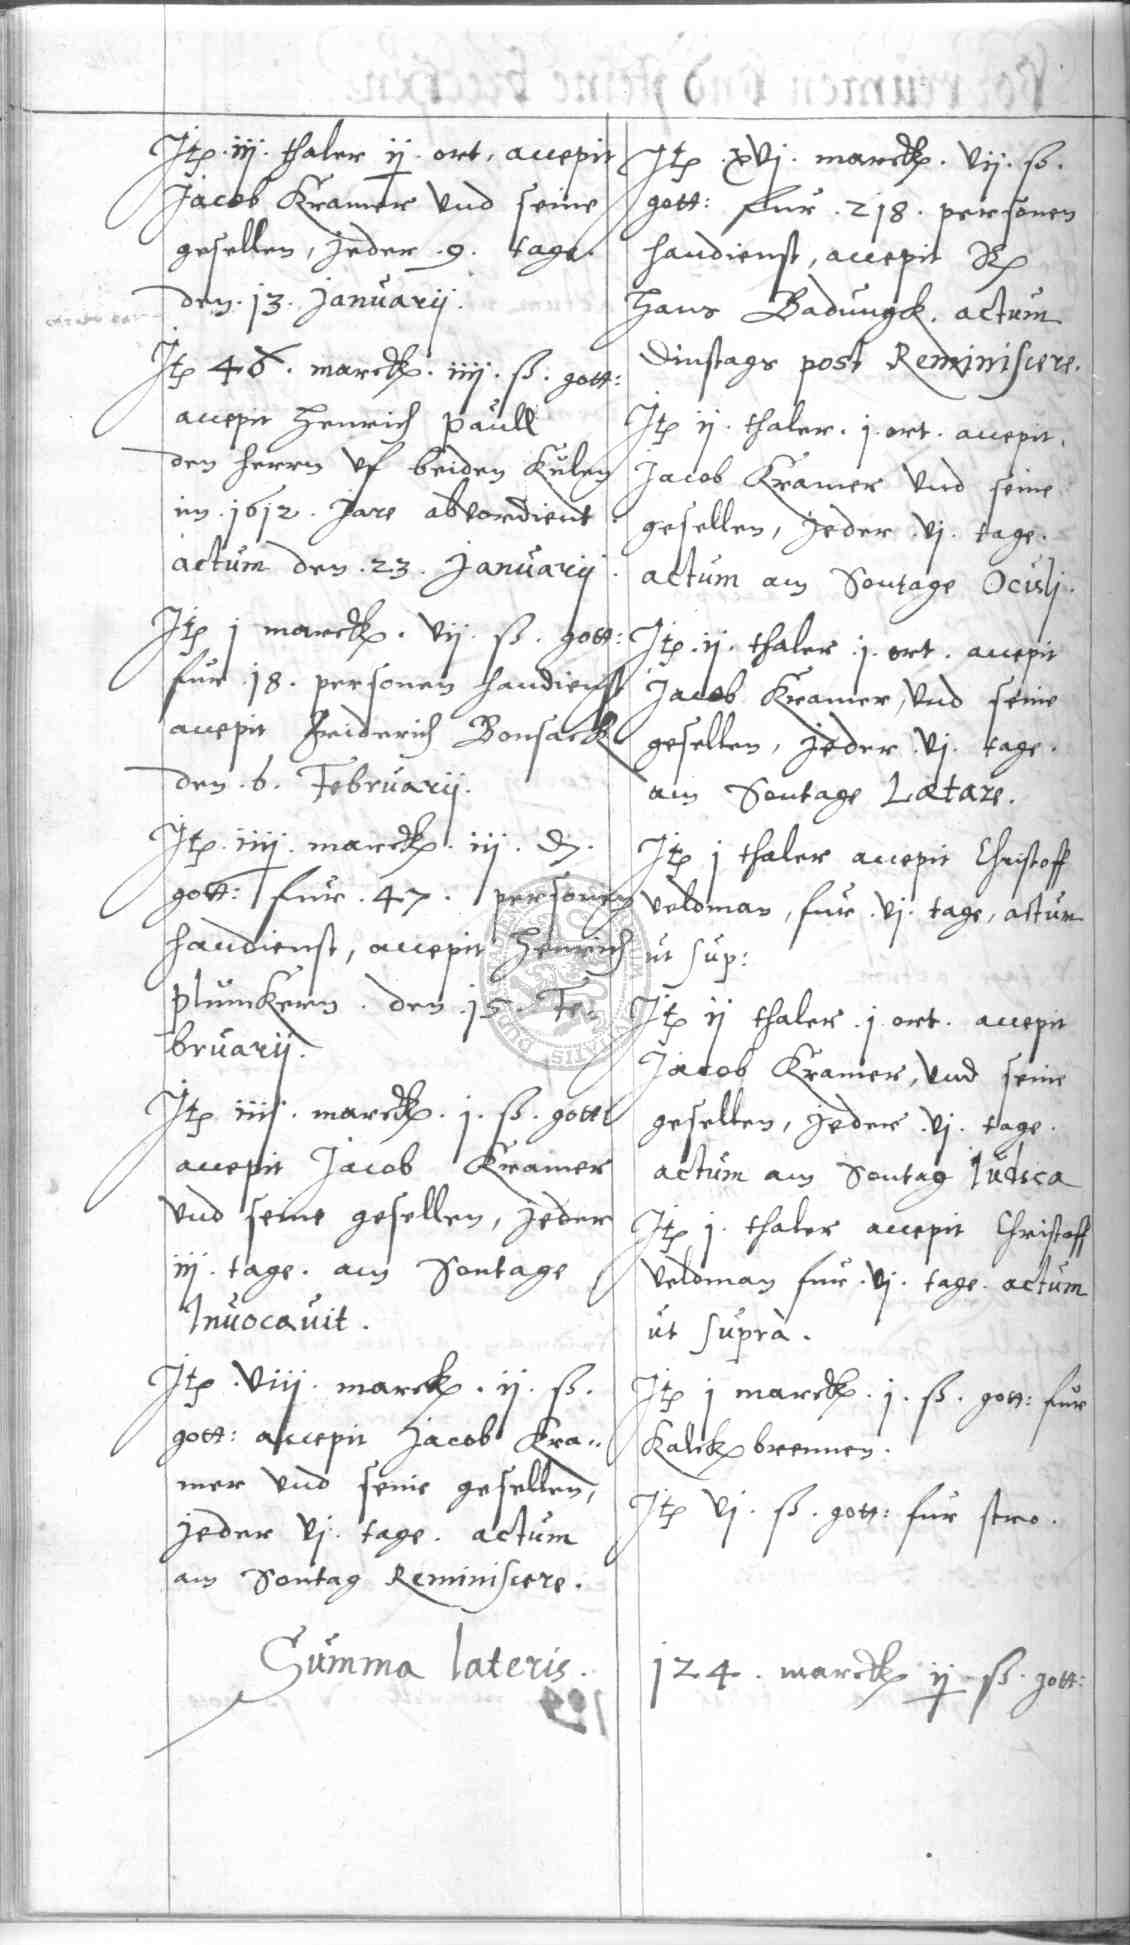 Itp. iij. thaler ij. ort, accepit
Jacob Kramer vnd seine
gesellen, jeder .9. tage.
den .13. Januarij.
Itp 46. marck. iiij. ß. gott:
accepit Henrich Paull
den herrn vf beiden Kulen
im .1612. Jare abvordient
actum den .23. Januarij.
Itp j marck. vij. ß. gott:
fur .18. personen handienst
accepit Friderich Bonsack
den .6. Februarij.
Itp. iiij. marck. iij. d.
gott: fur .47. personen
handienst, accepit Henrich
Plumkern. den .15. Fe-
bruarij.
Itp iiij. marck. j. ß. gott:
accepit Jacob Kramer
vnd seine gesellen, jeder
iij. tage. am Sontage
Invocauit.
Itp .viij. marck. ij. ß.
gott: accepit Jacob Kra-
mer vnd seine gesellen,
jeder vj. tage. actum
am Sontag Reminiscere.
Itp .xvj. marck. vij. ß.
gott: fur .218. personen
handienst, accepit
Hans Badungk. actum
Dinstags post Reminiscere.
Itp ij. thaler. j. ort. accepit
Jacob Kramer vnd seine
gesellen, jeder .vj. tage.
actum am Sontage Oculj.
Itp .ij. thaler .j. ort. accepit
Jacob Kramer, vnd seine
gesellen, jeder .vj. tage.
am Sontage Lætare.
Itp j thaler accepit Christoff
Veldman, fur .vj. tage, actum
ut sup:
Itp ij thaler .j. ort. accepit
Jacob Kramer, vnd seine
gesellen, jeder .vj. tage.
actum am Sontag Iudica
Itp j. thaler accepit Christoff
Veldman fur .vj. tage. actum
ut suprà.
Itp j marck. j. ß. gott: fur
Kalck brennen.
Itp vj. ß. gott: fur stro.
Summa lateris. 124. marck ij ß. gott: